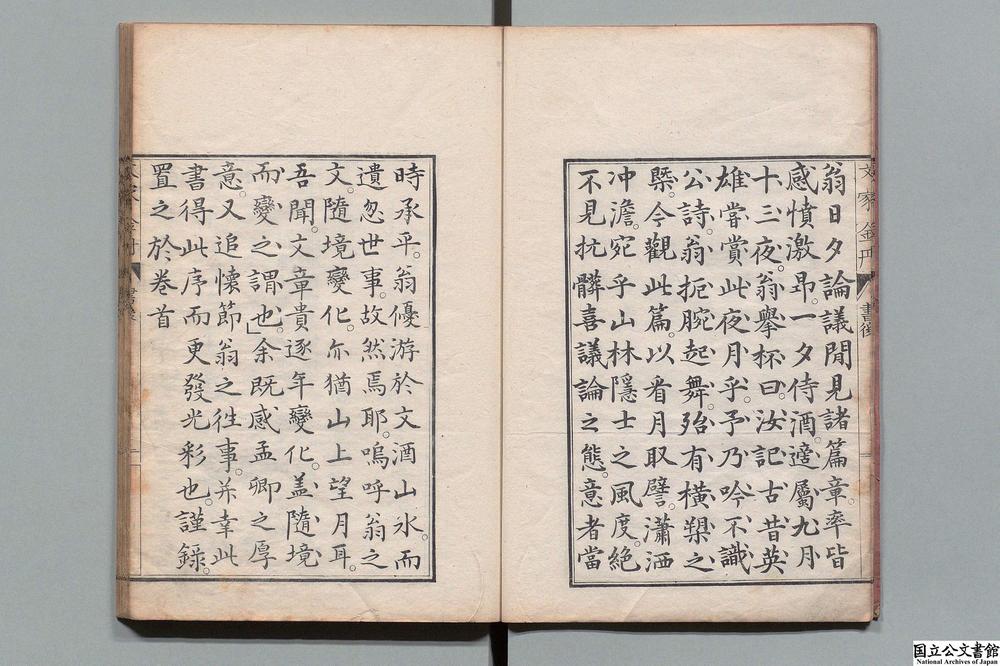 翁日夕論議。間見諸篇章。率皆
感憤激昂。一夕侍酒。適屬九月
十三夜。翁擧杯曰。汝記古昔英
雄嘗賞此夜月乎。予乃吟不識
公詩。翁扼腕起舞。殆有橫槊之
槩。今觀此篇。以看月取譬。瀟洒
冲澹。宛乎山林隱士之風度。絕
不見抗髒喜議論之態。意者當
書後
時承平。翁優游於文酒山水。而
遺忽世事。故然焉耶。嗚呼翁之
文。隨境變化。亦猶山上望月耳。
吾聞。文章貴逐年變化。盖隨境
而變之謂也。余既感孟卿之厚
意。又追懷節翁之徃事。并幸此
書得此序而更發光彩也。謹錄。
置之於卷首
国立公文書館
National Archives of Japan